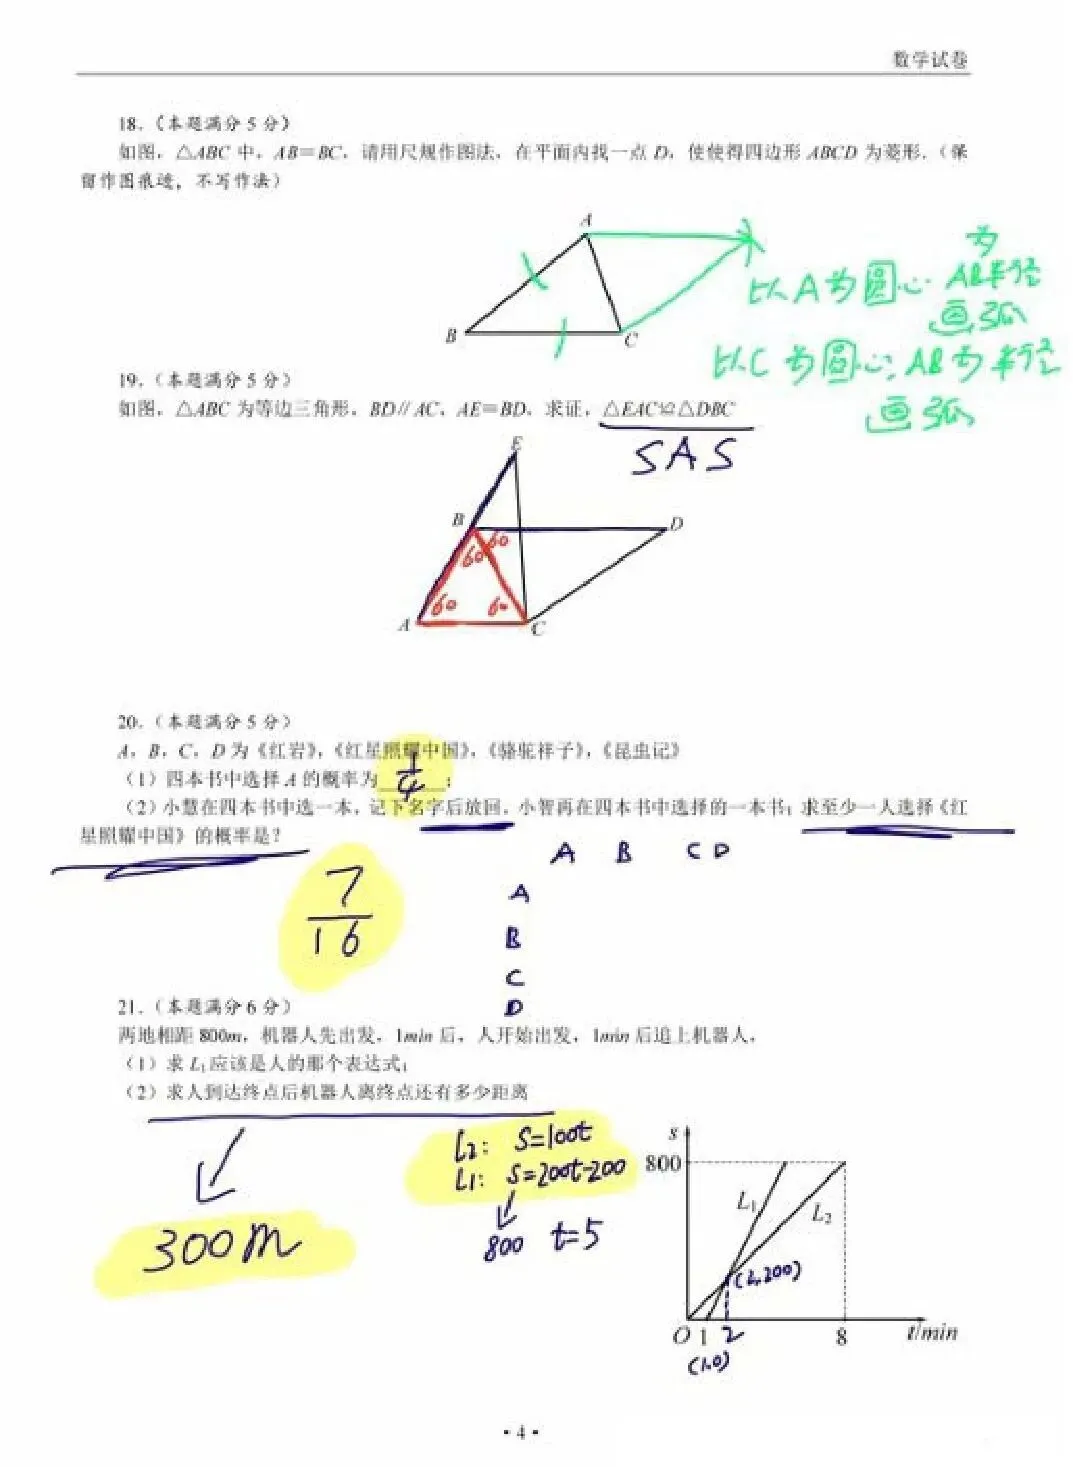 数学试卷
18.（本题满分 5 分）
如图，△ABC 中，AB=BC，请用尺规作图法，在平面内找一点 D，使使得四边形 ABCD 为菱形.（保
留作图痕迹，不写作法）
A
B
C
为
以A为圆心 AB半径
画弧
以C为圆心 AB为半径
画弧
19.（本题满分 5 分）
如图，△ABC 为等边三角形，BD∥AC，AE=BD，求证，△EAC≌△DBC
SAS
E
B
D
60
60
60
60
A
C
20.（本题满分 5 分）
A，B，C，D 为《红岩》，《红星照耀中国》，《骆驼祥子》，《昆虫记》
（1）四本书中选择 A 的概率为 1/4；
（2）小慧在四本书中选一本，记下名字后放回，小智再在四本书中选择的一本书；求至少一人选择《红
星照耀中国》的概率是？
A B C D
7
16
A
B
C
D
21.（本题满分 6 分）
两地相距 800m，机器人先出发，1min 后，人开始出发，1min 后追上机器人，
（1）求 L₁应该是人的那个表达式；
（2）求人到达终点后机器人离终点还有多少距离
L2: S=100t
L1: S=200t-200
800 t=5
300m
s
800
L₁
L₂
(2,200)
O 1 2 8 t/min
(1,0)
·4·